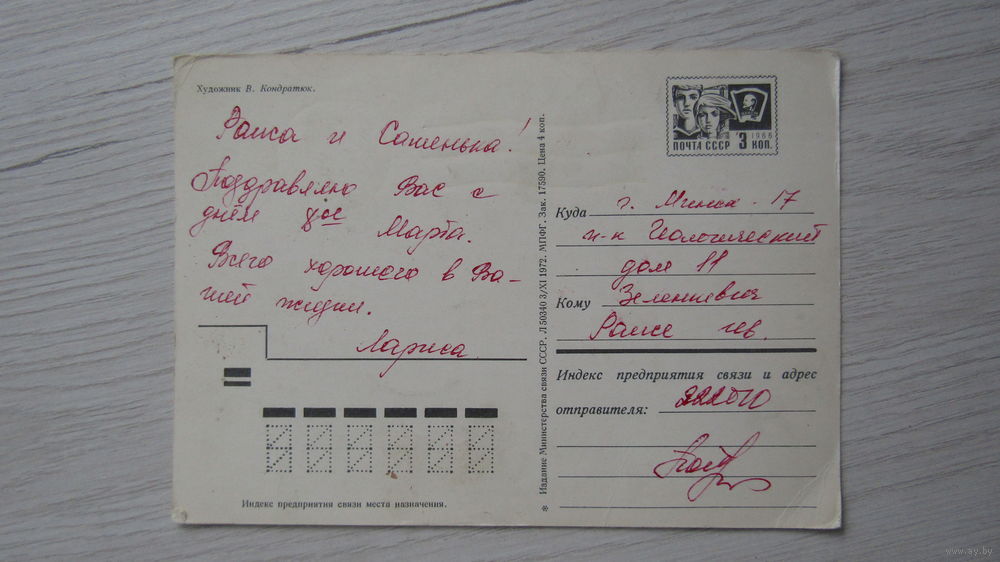 Художник В. Кондратюк.
Раиса и Сашенька!
Поздравляю Вас с
днём 8ое Марта.
Всего хорошего в Ва-
шей жизни.
Лариса
Индекс предприятия связи места назначения.
* Издание Министерства связи СССР. Л 50340 3/XI 1972. МПФГ. Зак. 17590. Цена 4 коп.
1966
ПОЧТА СССР 3 КОП.
Куда г. Минск - 17
п-к Геологический
дом 11
Кому Зеленкевич
Раисе
Индекс предприятия связи и адрес
отправителя:
www.ay.by